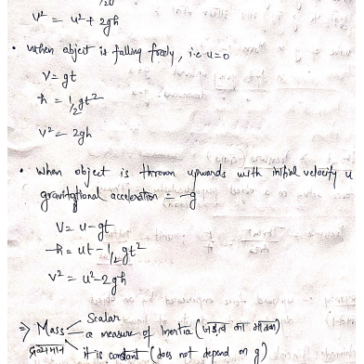 v² = u² + 2gh
• When object is falling freely, i.e. u=0
v = gt
h = 1/2 gt²
v² = 2gh
• When object is thrown upwards with initial velocity u
gravitational acceleration = -g
v = u - gt
h = ut - 1/2 gt²
v² = u² - 2gh
Scalar
⇒ Mass a measure of Inertia (जड़त्व का माप)
द्रव्यमान it is constant (does not depend on g)